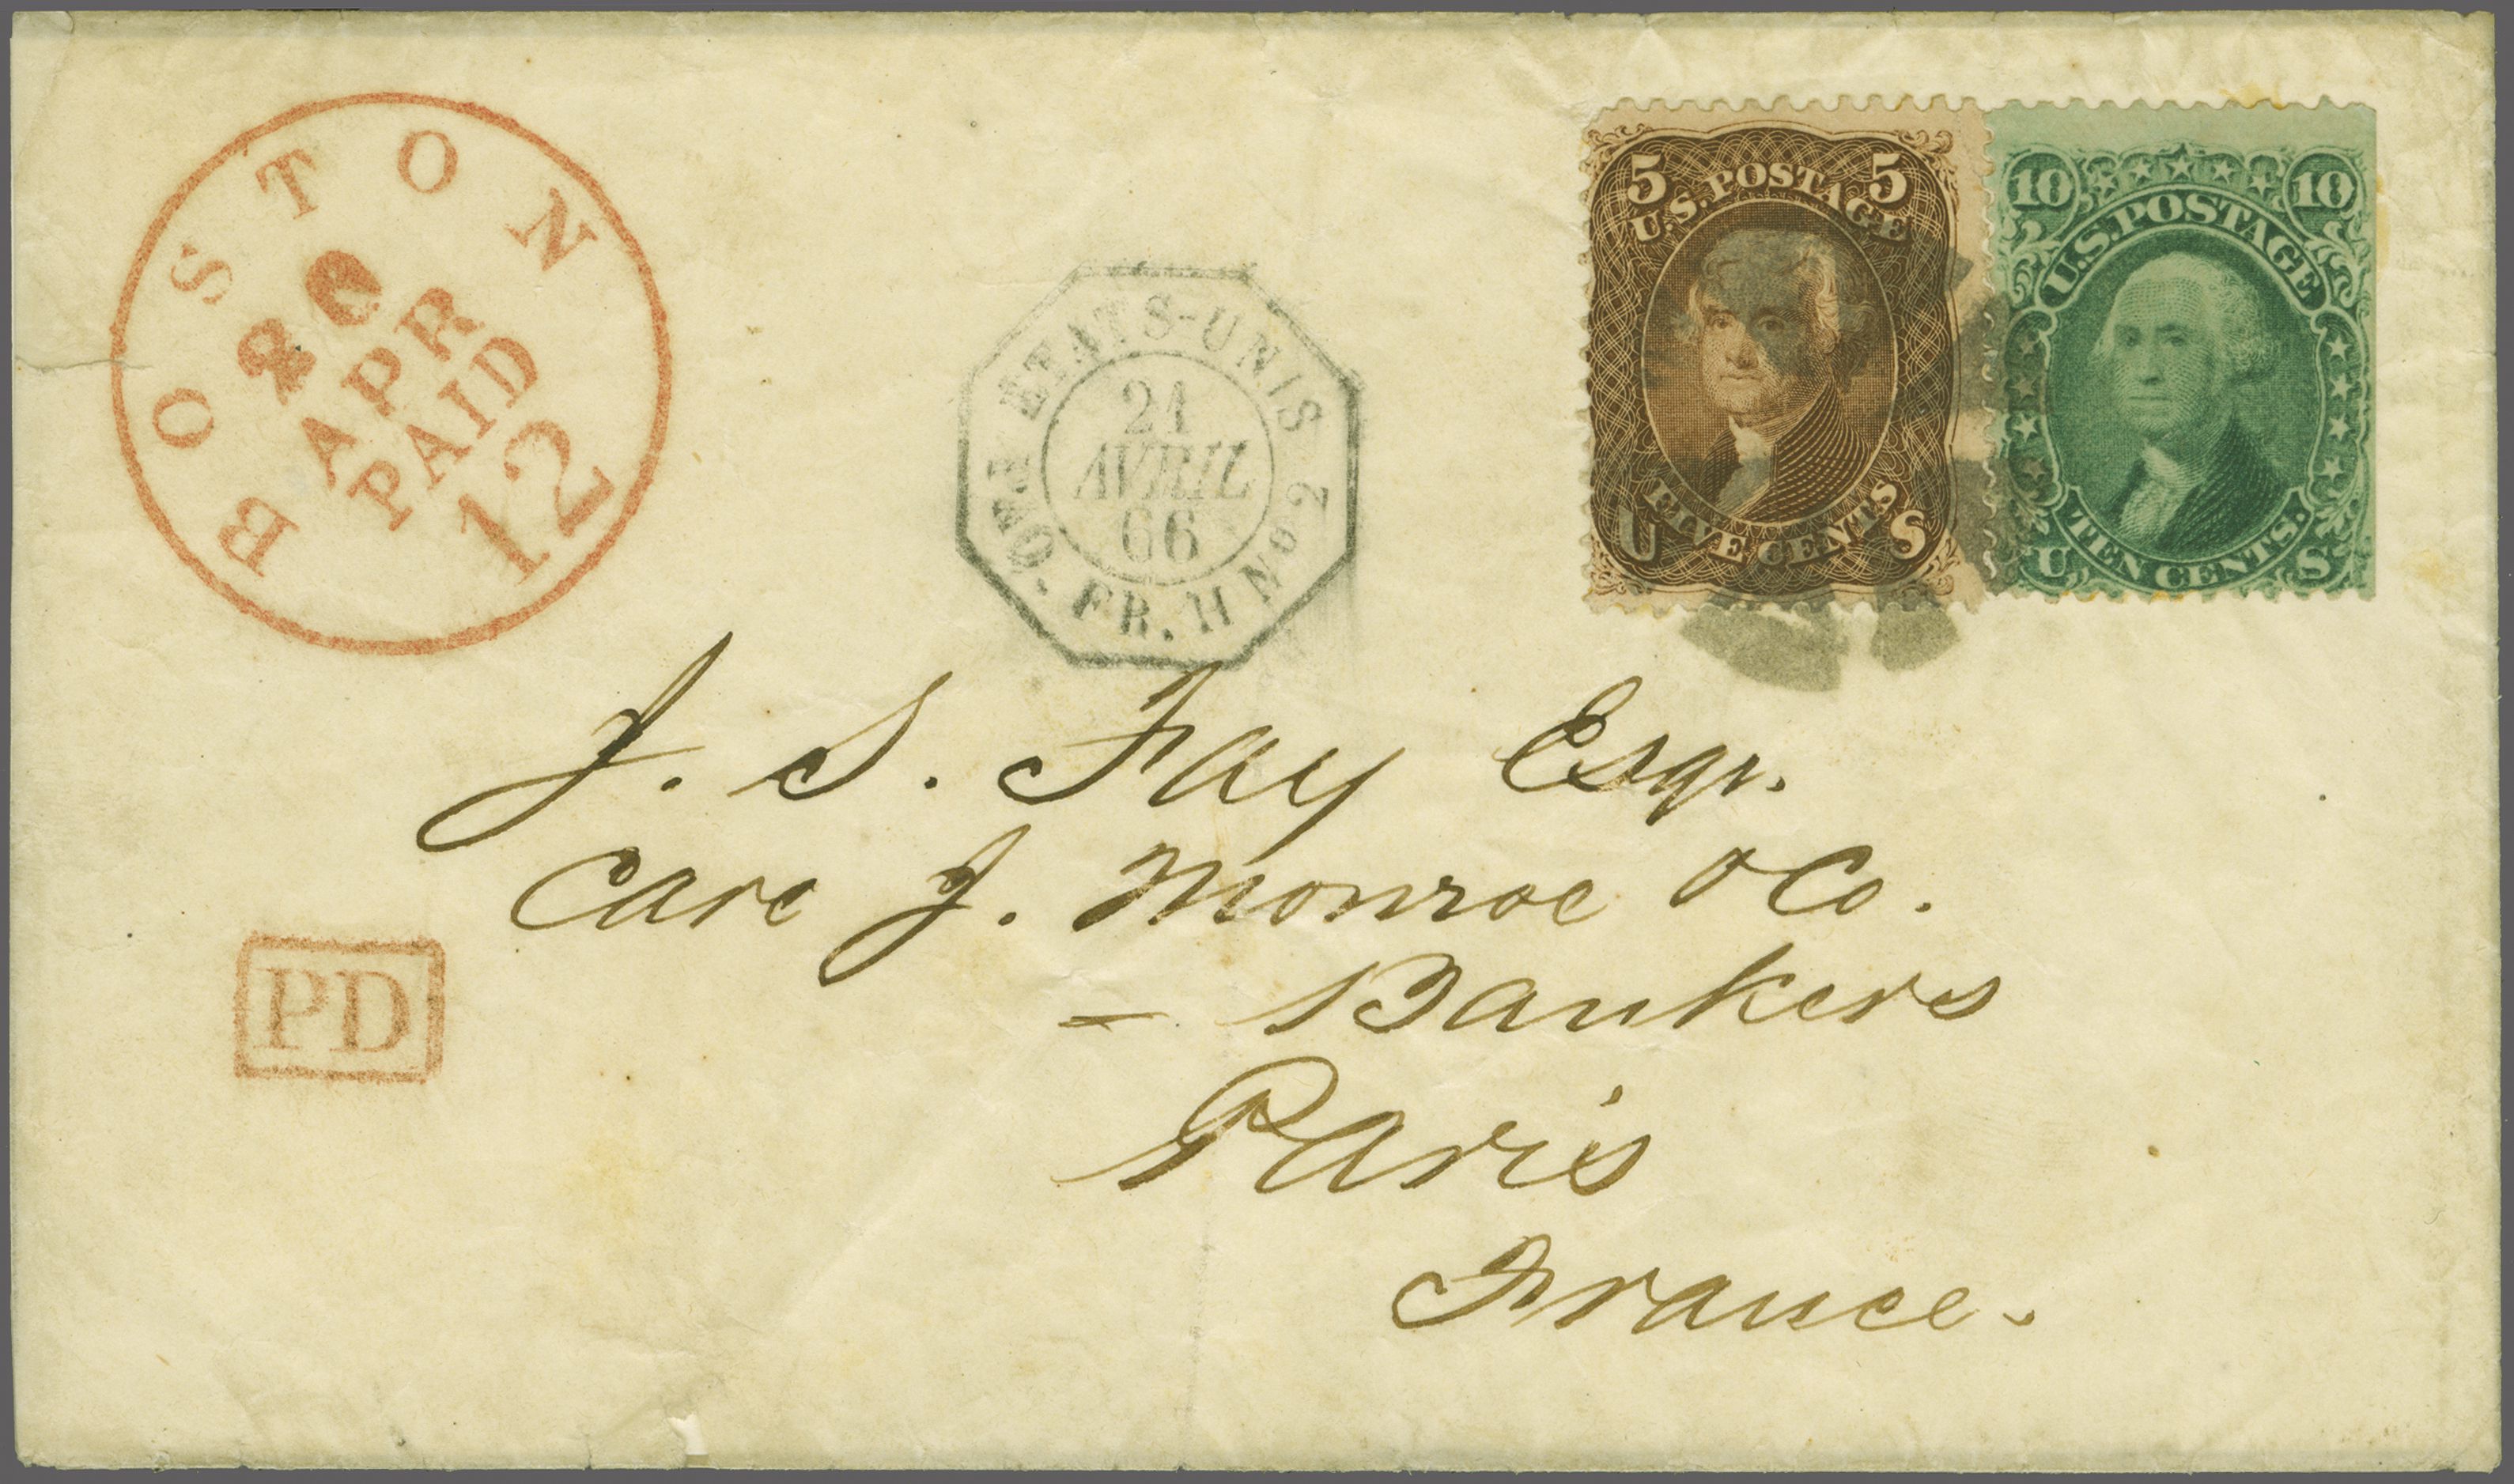 BOSTON
APR
PAID
12
ETATS-UNIS
PAQ. FR. H No 2
21
AVRIL
66
5 5
U.S. POSTAGE
FIVE CENTS
U S
10 10
U.S. POSTAGE
TEN CENTS.
U S
J. S. Fay Esqr.
Care J. Monroe & Co.
– Bankers
PD
Paris
France.